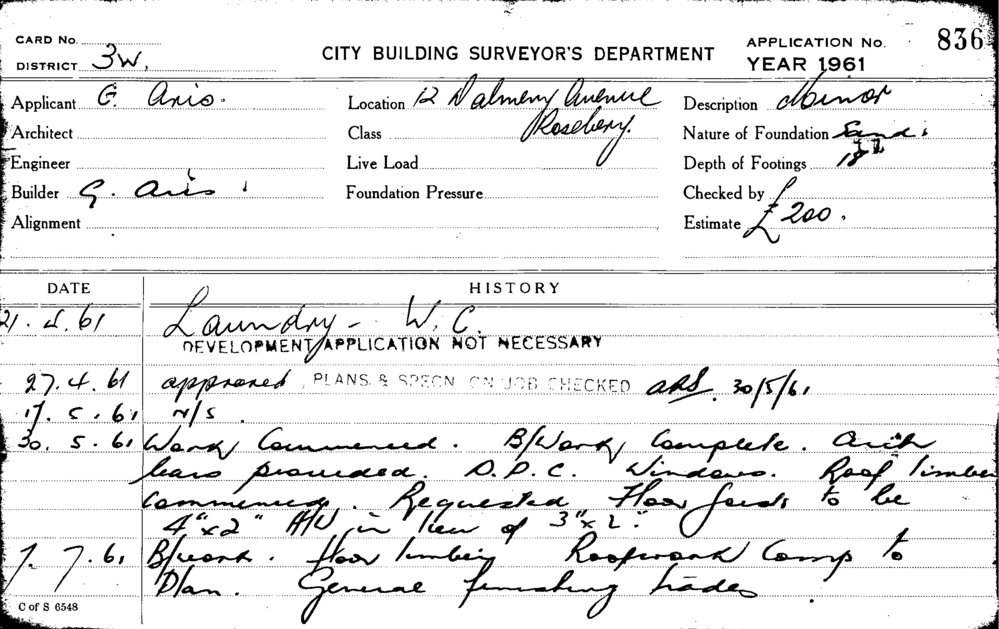 CARD No.
DISTRICT 3W.
CITY BUILDING SURVEYOR'S DEPARTMENT
APPLICATION No. 836
YEAR 1961
Applicant G. Aris.
Location 12 Dalmeny Avenue
Rosebery.
Description Minor
Architect
Class
Nature of Foundation Sand.
Engineer
Live Load
Depth of Footings 18"
Builder G. Aris
Foundation Pressure
Checked by
Alignment
Estimate £200.
DATE HISTORY
21.4.61 Laundry - W.C.
DEVELOPMENT APPLICATION NOT NECESSARY
27.4.61 approved PLANS & SPECN ON JOB CHECKED 30/5/61
17.5.61 N/S
30.5.61 Work Commenced. B/Work Complete. Arch
bars provided. D.P.C. Windows. Roof timber
Commenced. Requested Floor joists to be
4"x2" H/W in lieu of 3"x2".
7.7.61 B/work. floor timbers Roofwork Comp to
Plan. General finishing trades
C of S 6548